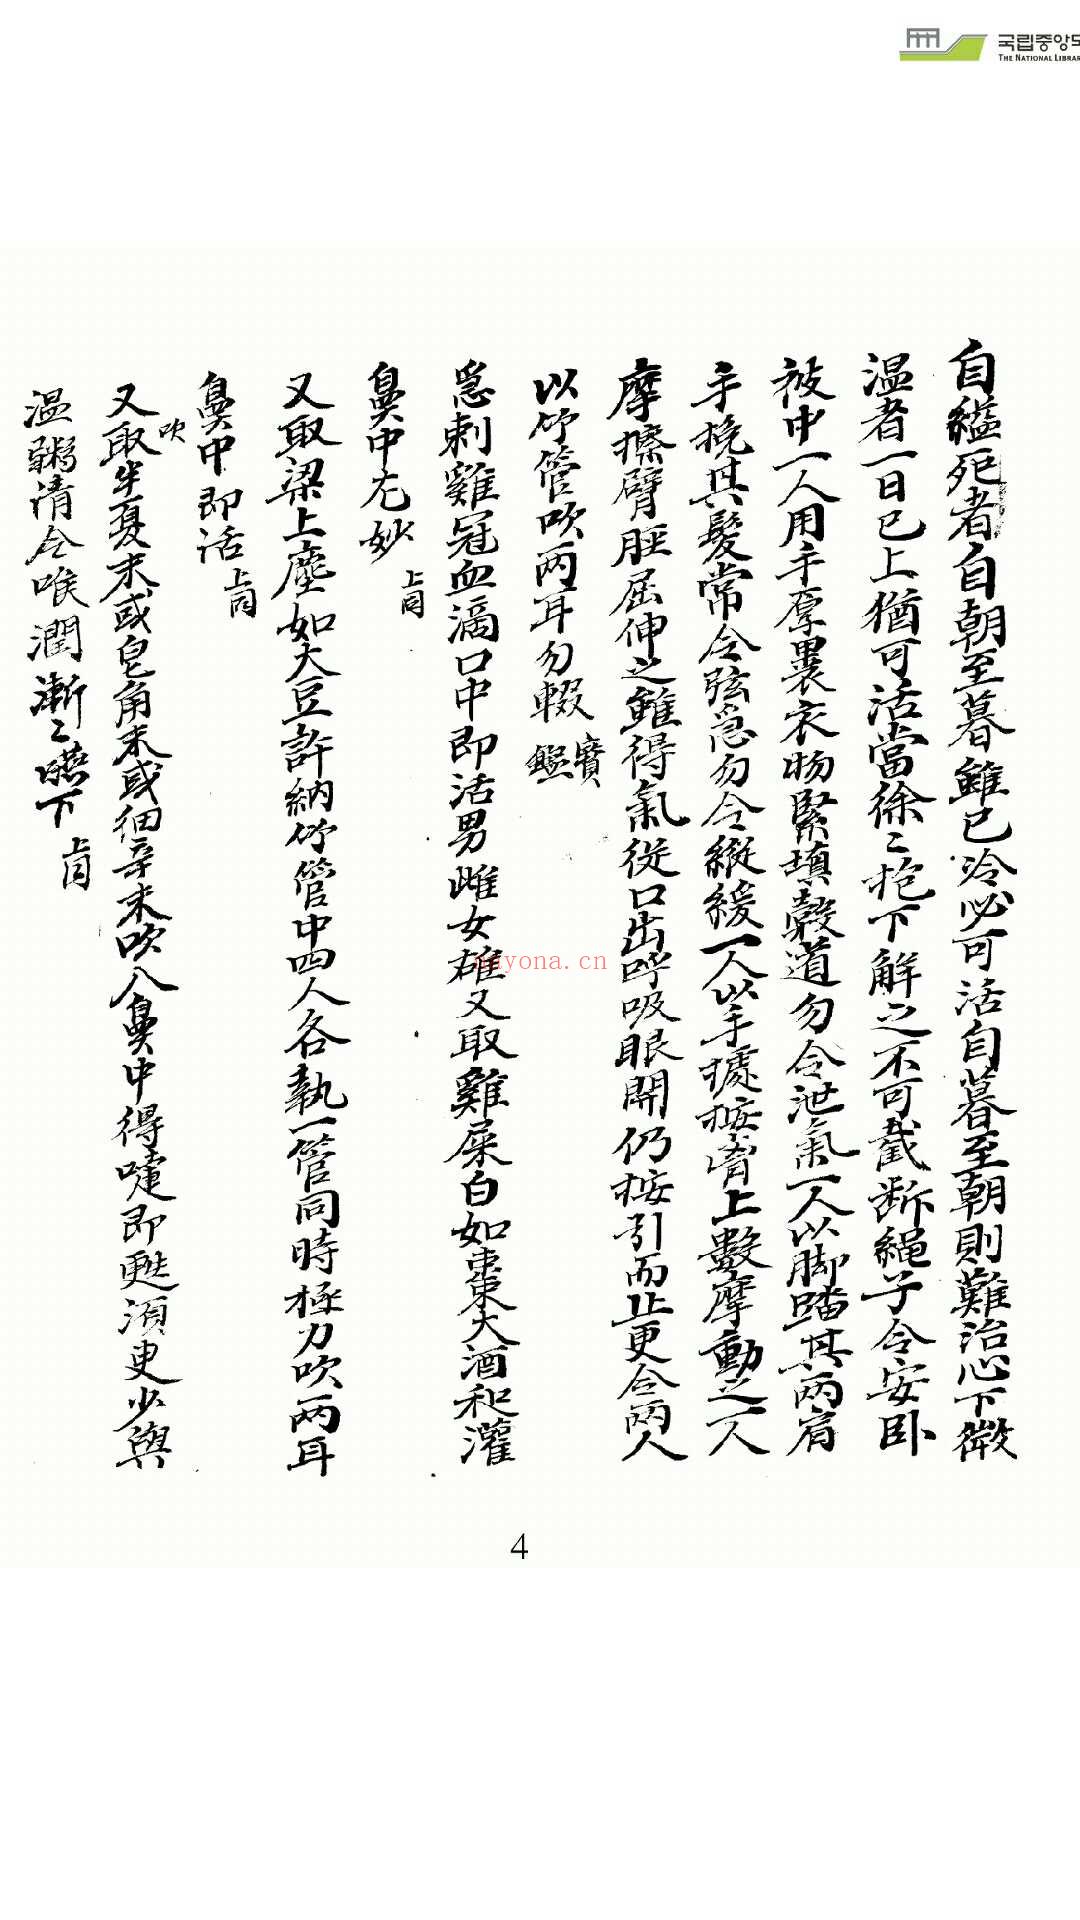 국립중앙도
THE NATIONAL LIBRAR
自縊死者自朝至暮雖已冷必可活自暮至朝則難治心下微
温者一日已上猶可活當徐〻抱下解之不可截断繩子令安卧
被中一人用手厚裹衣物緊填穀道勿令泄氣一人以脚踏其兩肩
手挽其髮常令弦急勿令縱緩一人以手據按胷上數摩動之一人
摩擦臂脛屈伸之雖得氣從口出呼吸眼開仍按引而止更令兩人
以竹管吹兩耳勿輟 寶鑑
急刺雞冠血滴口中即活男雌女雄又取雞屎白如棗大酒和灌
鼻中尤妙 上同
又取梁上塵如大豆許納竹管中四人各執一管同時極力吹兩耳
鼻中即活 上同
吹
又取半夏末或皂角末或細辛末吹入鼻中得嚏即甦須更少與
温粥清令喉潤漸〻嚥下 上同
nayona.cn
4